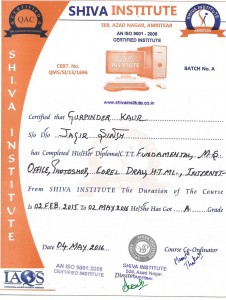 SHIVA INSTITUTE
SHIVA INSTITUTE
528, AZAD NAGAR, AMRITSAR
AN ISO 9001 - 2008
CERTIFIED INSTITUTE
QAC
CERT. NO.
QMS/SI/13/1696
BATCH No. A
www.shivainstitute.co.in
Certified that GURPINDER KAUR
S/o D/o JAGIR SINGH
has Completed His/Her Diploma/C.T.T. FUNDAMENTAL, M.S.
OFFICE, PHOTOSHOP, COREL DRAW, H.T.ML., INTERNET
From SHIVA INSTITUTE The Duration of The Course
Is 02 FEB. 2015 To 02 MAY 2016 He/She Has Got A Grade
Date 04 MAY 2016
Course Co-Ordinator
AN ISO 9001:2008
CERTIFIED INSTITUTE
SHIVA INSTITUTE
528, Azad Nagar,
Director
IAOS